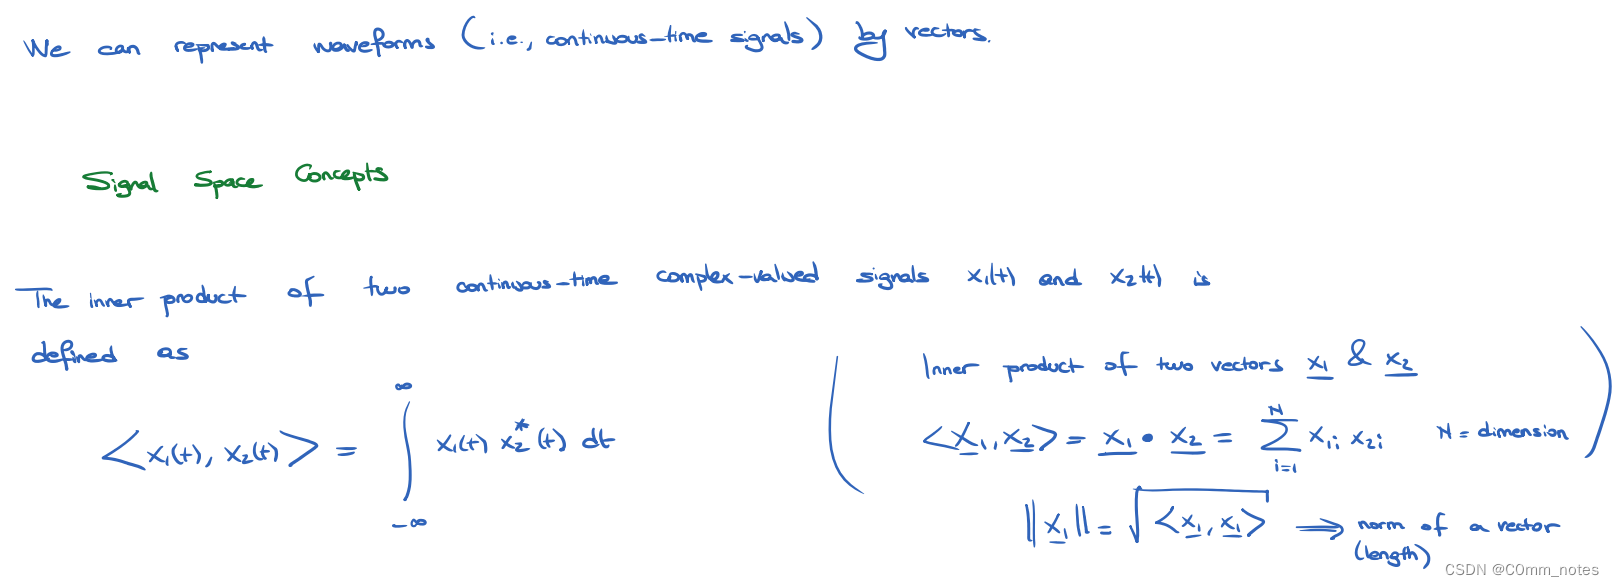 We can represent waveforms (i.e., continuous-time signals) by vectors.
Signal Space Concepts
The inner product of two continuous-time complex-valued signals x₁(t) and x₂(t) is
defined as
<x₁(t), x₂(t)> = ∫_{-∞}^{∞} x₁(t) x₂*(t) dt
(Inner product of two vectors x₁ & x₂
<x₁, x₂> = x₁ • x₂ = ∑_{i=1}^{N} x₁ᵢ x₂ᵢ N = dimension)
||x₁|| = √<x₁, x₁> ⟹ norm of a vector
(length)
CSDN @C0mm_notes